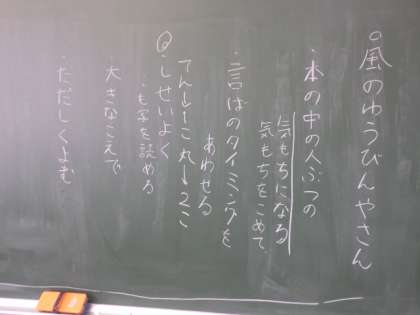 ◎風のゆうびんやさん
・本の中の人ぶつの
気もちになる
気もちをこめて
・言ばのタイミングを
あわせる
てん→1こ 丸→2こ
・しせいよく
・も字を読める
・大きなこえで
・ただしくよむ